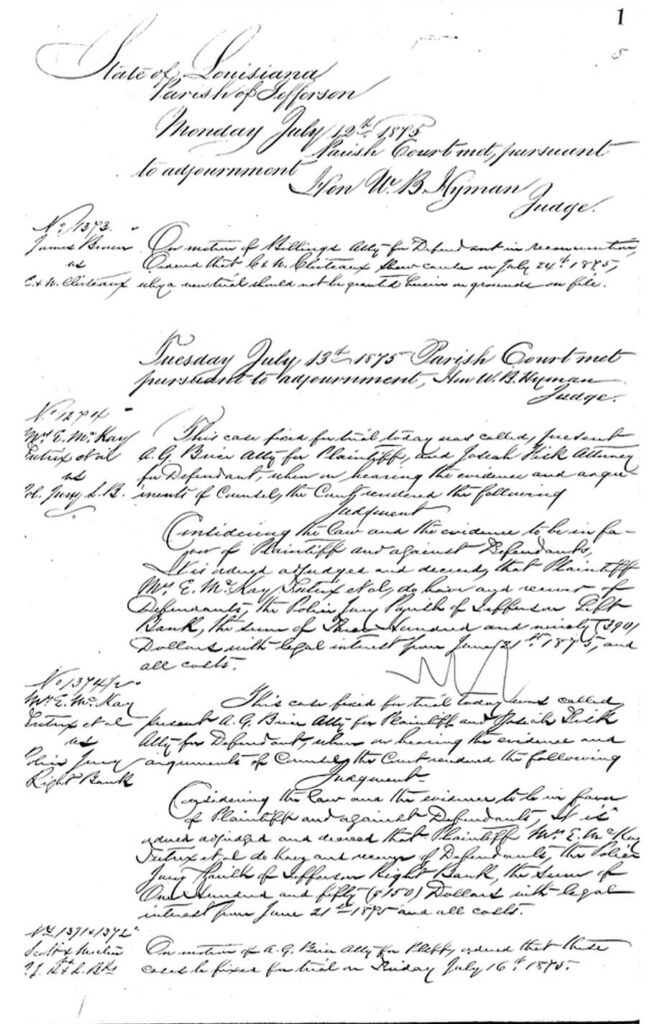 1
5
State of Louisiana
Parish of Jefferson
Monday July 12th 1875
Parish Court met, pursuant
to adjournment
Hon W. B. Hyman
Judge.
No 1373.
James
vs
C & N.
On motion of Billings Atty for Defendant in reconvention,
Ordered that C & N. show cause on July 24th 1875,
why a new trial should not be granted herein on grounds on file.
Tuesday July 13th 1875 Parish Court met
pursuant to adjournment, Hon W. B. Hyman
Judge.
Mrs E. McKay
Tutrix et al
vs
Pol. Jury L. B.
This case fixed for trial today was called, present
A. G. Atty for Plaintiff, and Joseph Attorney
for Defendant, when on hearing the evidence and argu-
ments of Counsel, the Court rendered the following
Judgment
Considering the law and the evidence to be in fa-
vor of Plaintiff and against Defendants,
It is ordered adjudged and decreed, that Plaintiff
Mrs E. McKay, Tutrix et al, do have and recover of
Defendants, the Police Jury Parish of Jefferson Left
Bank, the sum of Three Hundred and ninety (390)
Dollars with legal interest from June 21st 1875, and
all costs.
No 1374 1/2
Mrs E. McKay
Tutrix et al
vs
Police Jury
Right Bank
This case fixed for trial today was called,
present A. G. Atty for Plaintiff and Joseph
Atty for Defendant, when on hearing the evidence and
arguments of Counsel, the Court rendered the following
Judgment
Considering the law and the evidence to be in favor
of Plaintiff and against Defendants, It is
ordered adjudged and decreed that Plaintiff, Mrs E. McKay
Tutrix et al do have and recover of Defendants, the Police
Jury Parish of Jefferson Right Bank, the sum of
One Hundred and fifty ($150) Dollars with legal
interest from June 21st 1875 and all costs.
Nos 1371 & 1372
Scott &
P. J. Rt & L. Bks
On motion of A. G. Atty for Pltffs, ordered that these
cases be fixed for trial on Friday July 16th 1875.